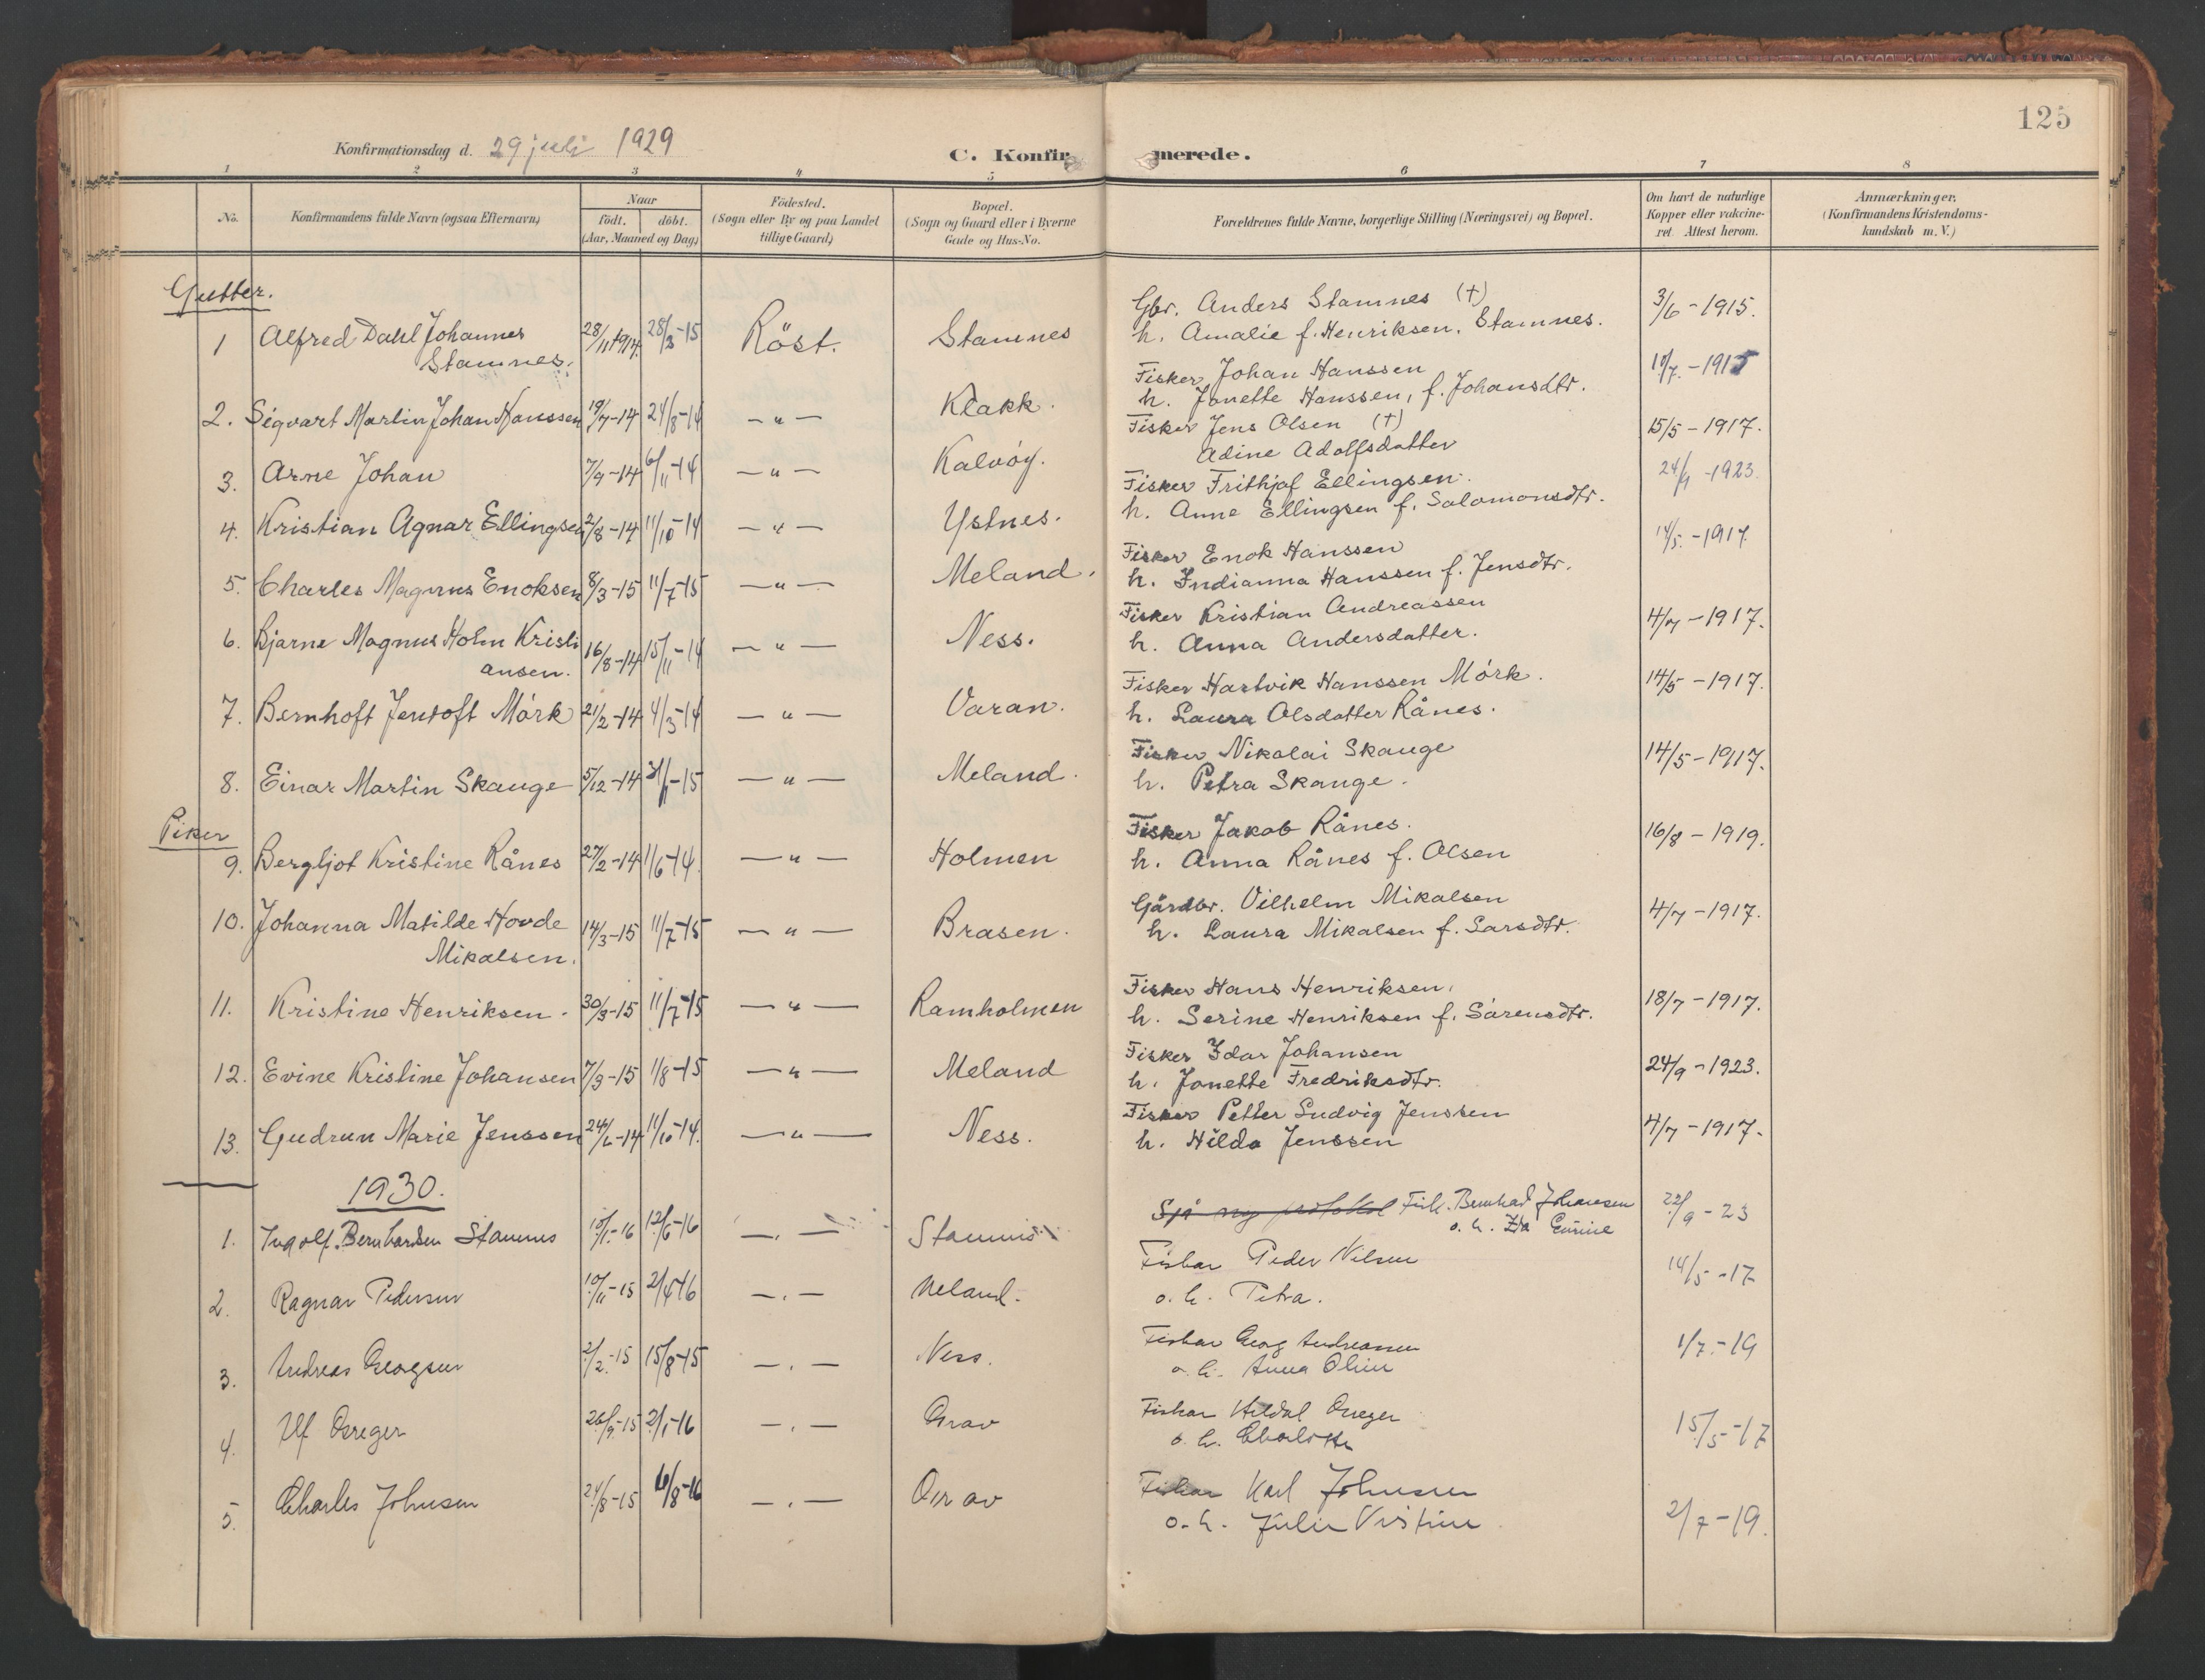 125
Konfirmationsdag d. 29 juli 1929
C. Konfirmerede.
1 2 3 4 5 6 7 8
No. Konfirmandens fulde Navn (ogsaa Efternavn)
Naar
födt. döbt.
(Aar, Maaned og Dag)
Födested.
(Sogn eller By og paa Landet
tillige Gaard)
Bopæl.
(Sogn og Gaard eller i Byerne
Gade og Hus-No.
Forældrenes fulde Navne, borgerlige Stilling (Næringsvei) og Bopæl.
Om havt de naturlige
Kopper eller vakcine-
ret. Attest herom.
Anmærkninger,
(Konfirmandens Kristendoms-
kundskab m. V.)
Gutter.
1 Alfred Dahl Johannes 28/11 1914. 28/3-15 Röst. Stamnes Gbr. Anders Stamnes (†) 3/6-1915.
Stamnes. h. Amalie f. Henriksen, Stamnes.
2. Sigvart Martin Johan Hanssen 19/7-14 24/8-14 —"— Klakk. Fisker Johan Hanssen 10/7.-1915
h. Jonette Hanssen, f. Johansdtr.
3. Arne Johan 7/9-14 6/11-14 —"— Kalvöy. Fisker Jens Olsen (†) 15/5-1917.
Adine Adolfsdatter
4. Kristian Agnar Ellingsen 2/8-14 11/10-14 —"— Ystnes. Fisker Frithjof Ellingsen. 24/9-1923.
h. Anne Ellingsen f. Salomonsdtr.
5. Charles Magnus Enoksen 8/3-15 11/7-15 —"— Meland. Fisker Enok Hanssen 14/5.-1917.
h. Indianna Hanssen f. Jensdtr.
6. Bjarne Magnus Holm Kristi 16/8-14 15/11-14 —"— Ness. Fisker Kristian Andreassen 4/7-1917.
ansen. h. Anna Andersdatter.
7. Bernhoft Jentoft Mörk 21/2-14 4/3-14 —"— Varan. Fisker Hartvik Hanssen Mörk. 14/5-1917.
h. Laura Olsdatter Rånes.
8. Einar Martin Skauge 5/12-14 31/1-15 —"— Meland. Fisker Nikolai Skauge 14/5-1917.
h. Petra Skauge.
Piker
9. Bergljot Kristine Rånes 27/2-14 1/6-14. —"— Holmen Fisker Jakob Rånes. 16/8-1919.
h. Anna Rånes f. Olsen
10. Johanna Matilde Hovde 14/3-15 11/7-15 —"— Brasen. Gårdbr. Vilhelm Mikalsen 4/7-1917.
Mikalsen. h. Laura Mikalsen f. Larsdtr.
11. Kristine Henriksen. 30/3-15 11/7-15 —"— Ramholmen Fisker Hans Henriksen, 18/7-1917.
h. Serine Henriksen f. Sörensdtr.
12. Evine Kristine Johansen 7/3-15 1/8-15 —"— Meland Fisker Idar Johansen 24/9-1923.
h. Jonette Fredriksdtr.
13. Gudrun Marie Jenssen 24/6-14 11/10-14. —"— Ness. Fisker Petter Ludvig Jenssen 4/7-1917.
h. Hilda Jenssen
1930.
1. Ingolf Bernhardsen Stamnes 10/1-16 12/6-16 —.— Stamnes Sjå ny protokol Fisk. Bernhad Johansen 22/9-23
o. h.
2. Ragnar Pedersen 10/11-15 2/4-16 —.— Meland. Fiskar Peder Nilsen 14/5-17
o. h. Petra.
3. Andreas Georgsen 2/2-15 15/8-15 —.— Ness. Fiskar Georg Andreassen 1/7-19
o. h. Anna Oline
4. Ulf Greger 26/9-15 2/1-16 —.— Grav Fiskar Hildal Greger 15/5-17
o. h. Charlotte
5. Charles Johnsen 24/8-15 6/8-16 —.— Grav Fiskar Karl Johnsen 2/7-19.
o. h. Julie Kristine